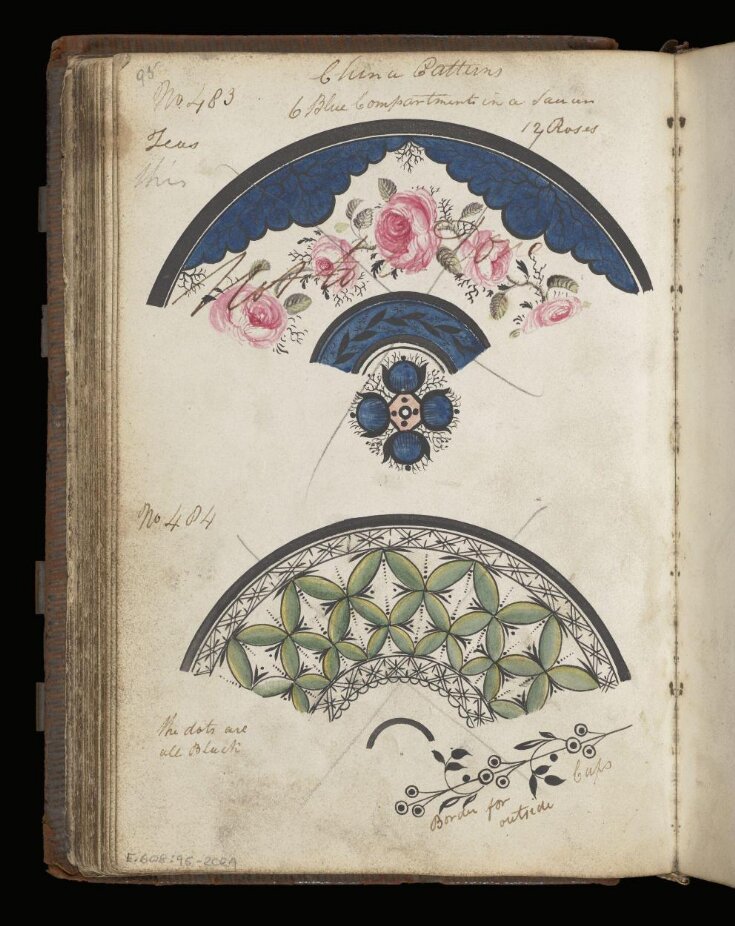 95
China Patterns
No. 483
6 Blue Compartments in a Saucer
12 Roses
Teas
this
Not to done
No 484
The dots are
all Black
Border for outside Cups
E.608:95-202A